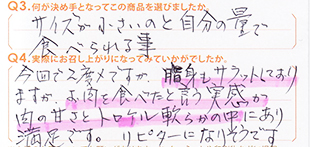 Q3.何が決め手となってこの商品を選びましたか。
サイズが小さいのと自分の量で
食べられる事
Q4.実際にお召し上がりになってみていかがでしたか。
今回で2度メですが、脂身もサラットしており
ますが、お肉を食べたと言う実感が
肉の甘さとトロケル軟らかの中にあり
満足です。リピターになりそうです